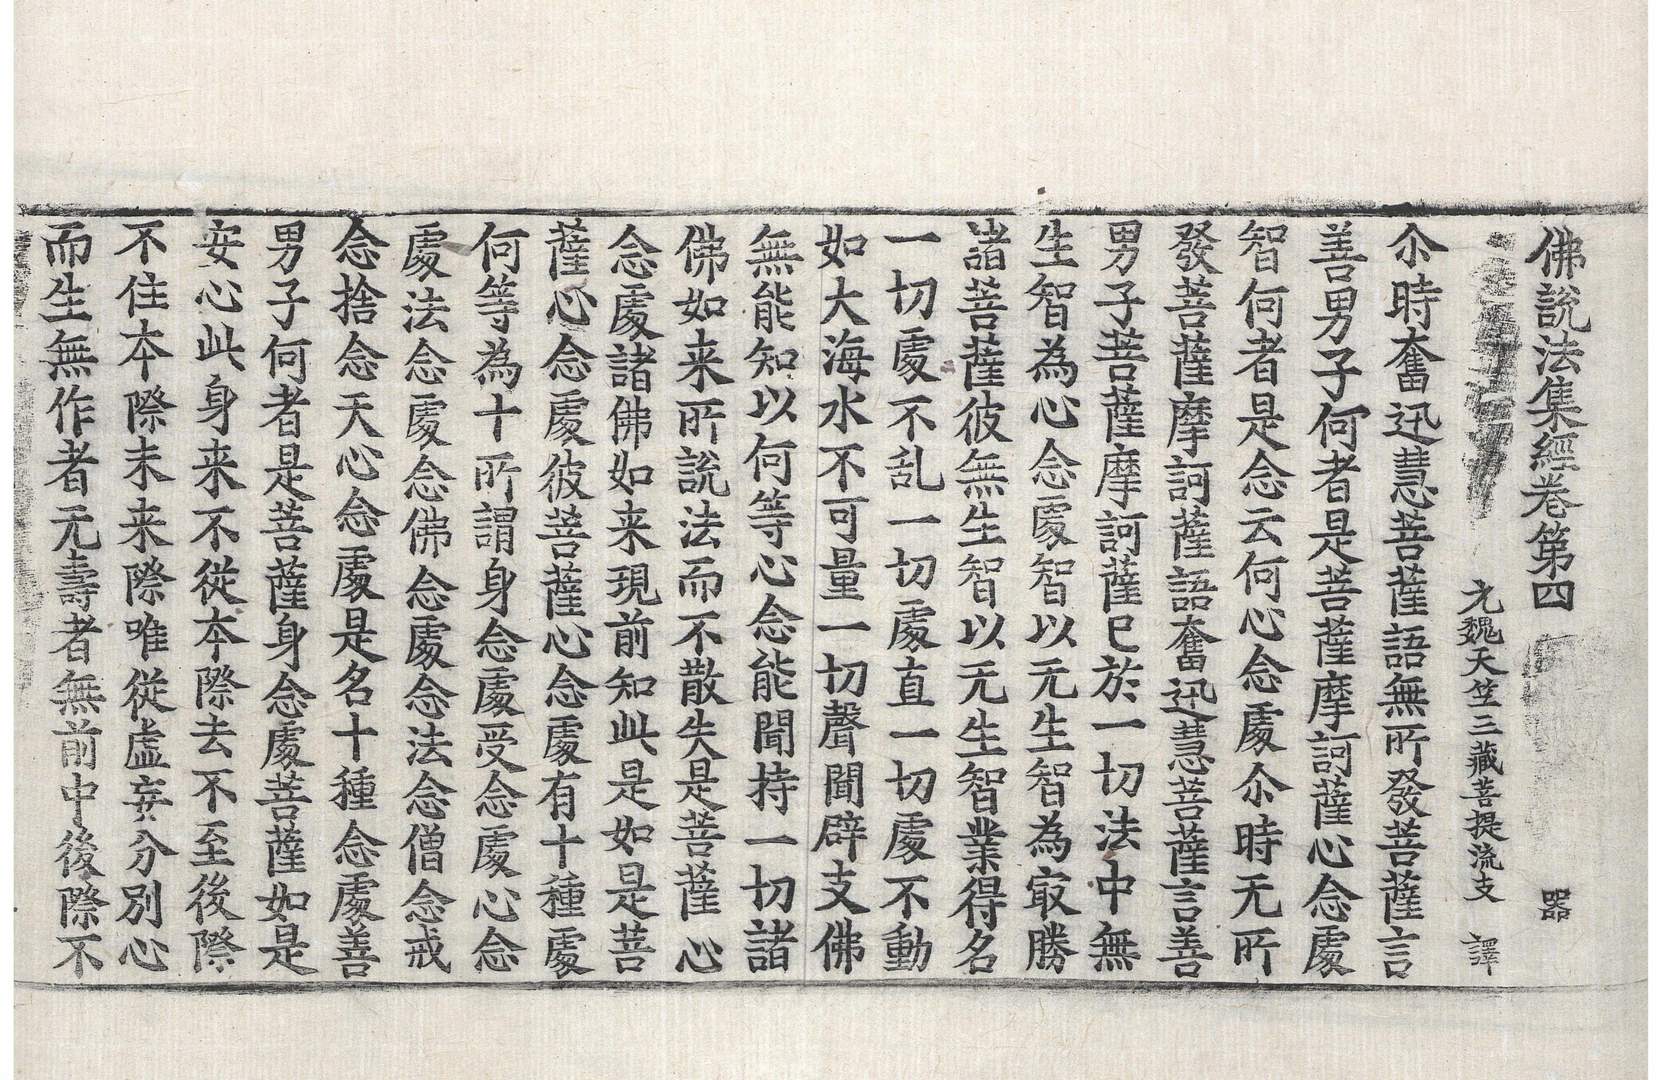 佛說法集經卷第四 器
元魏天竺三藏菩提流支 譯
尒時奮迅慧菩薩語無所發菩薩言
善男子何者是菩薩摩訶薩心念處
智何者是念云何心念處尒時无所
發菩薩摩訶薩語奮迅慧菩薩言善
男子菩薩摩訶薩已於一切法中無
生智為心念處智以无生智為㝡勝
諸菩薩彼無生智以无生智業得名
一切處不乱一切處直一切處不動
如大海水不可量一切聲聞辟支佛
無能知以何等心念能聞持一切諸
佛如来所說法而不散失是菩薩心
念處諸佛如来現前知此是如是菩
薩心念處彼菩薩心念處有十種處
何等為十所謂身念處受念處心念
處法念處念佛念處念法念僧念戒
念捨念天心念處是名十種念處善
男子何者是菩薩身念處菩薩如是
安心此身来不從本際去不至後際
不住本際未来際唯從虛妄分別心
而生無作者无壽者無前中後際不